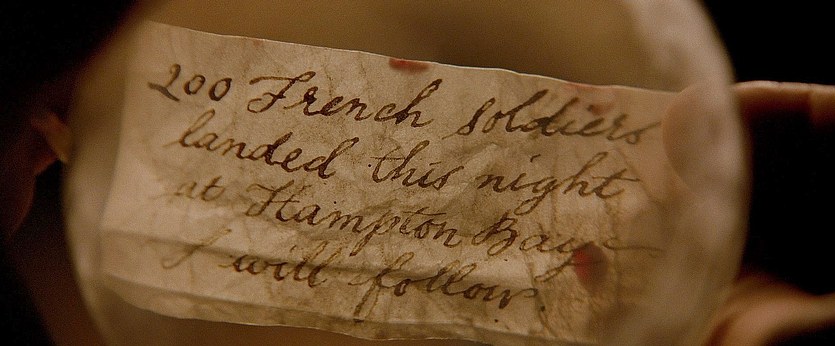 200 French soldiers
landed this night
at Hampton Bay
I will follow.